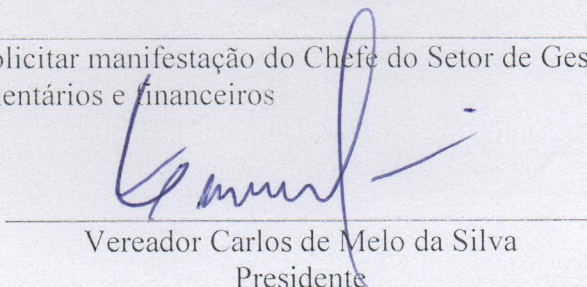 olicitar manifestação do Chefe do Setor de Ges
entários e financeiros
Vereador Carlos de Melo da Silva
Presidente